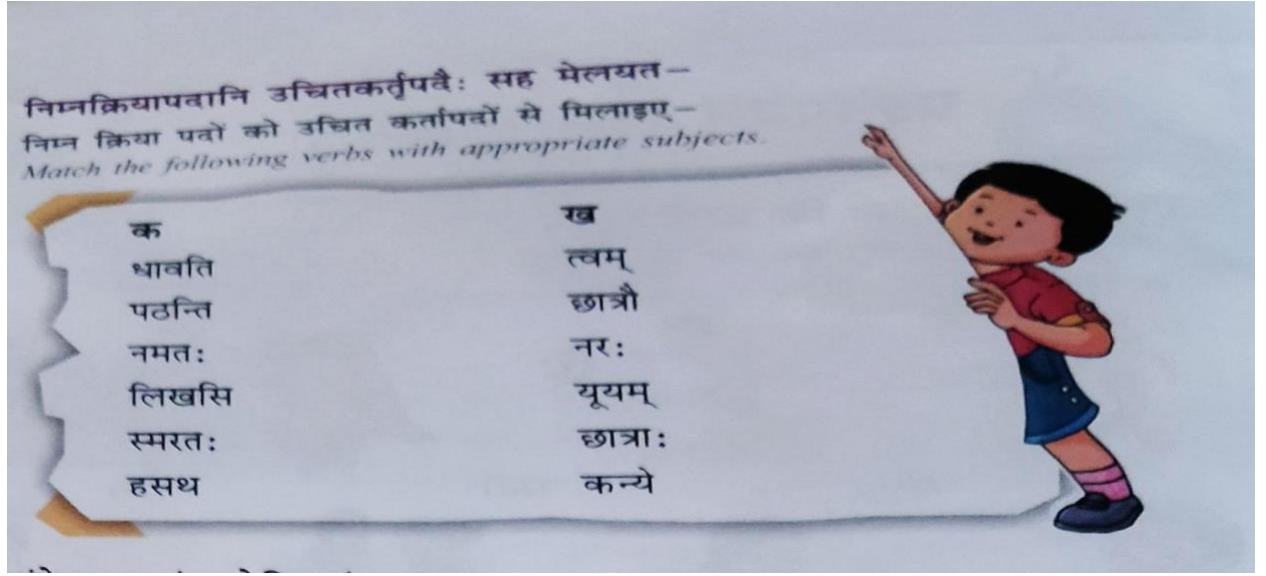 निम्नक्रियापदानि उचितकर्तृपदैः सह मेलयत–
निम्न क्रिया पदों को उचित कर्तापदों से मिलाइए–
Match the following verbs with appropriate subjects.
क ख
धावति त्वम्
पठन्ति छात्रौ
नमतः नरः
लिखसि यूयम्
स्मरतः छात्राः
हसथ कन्ये